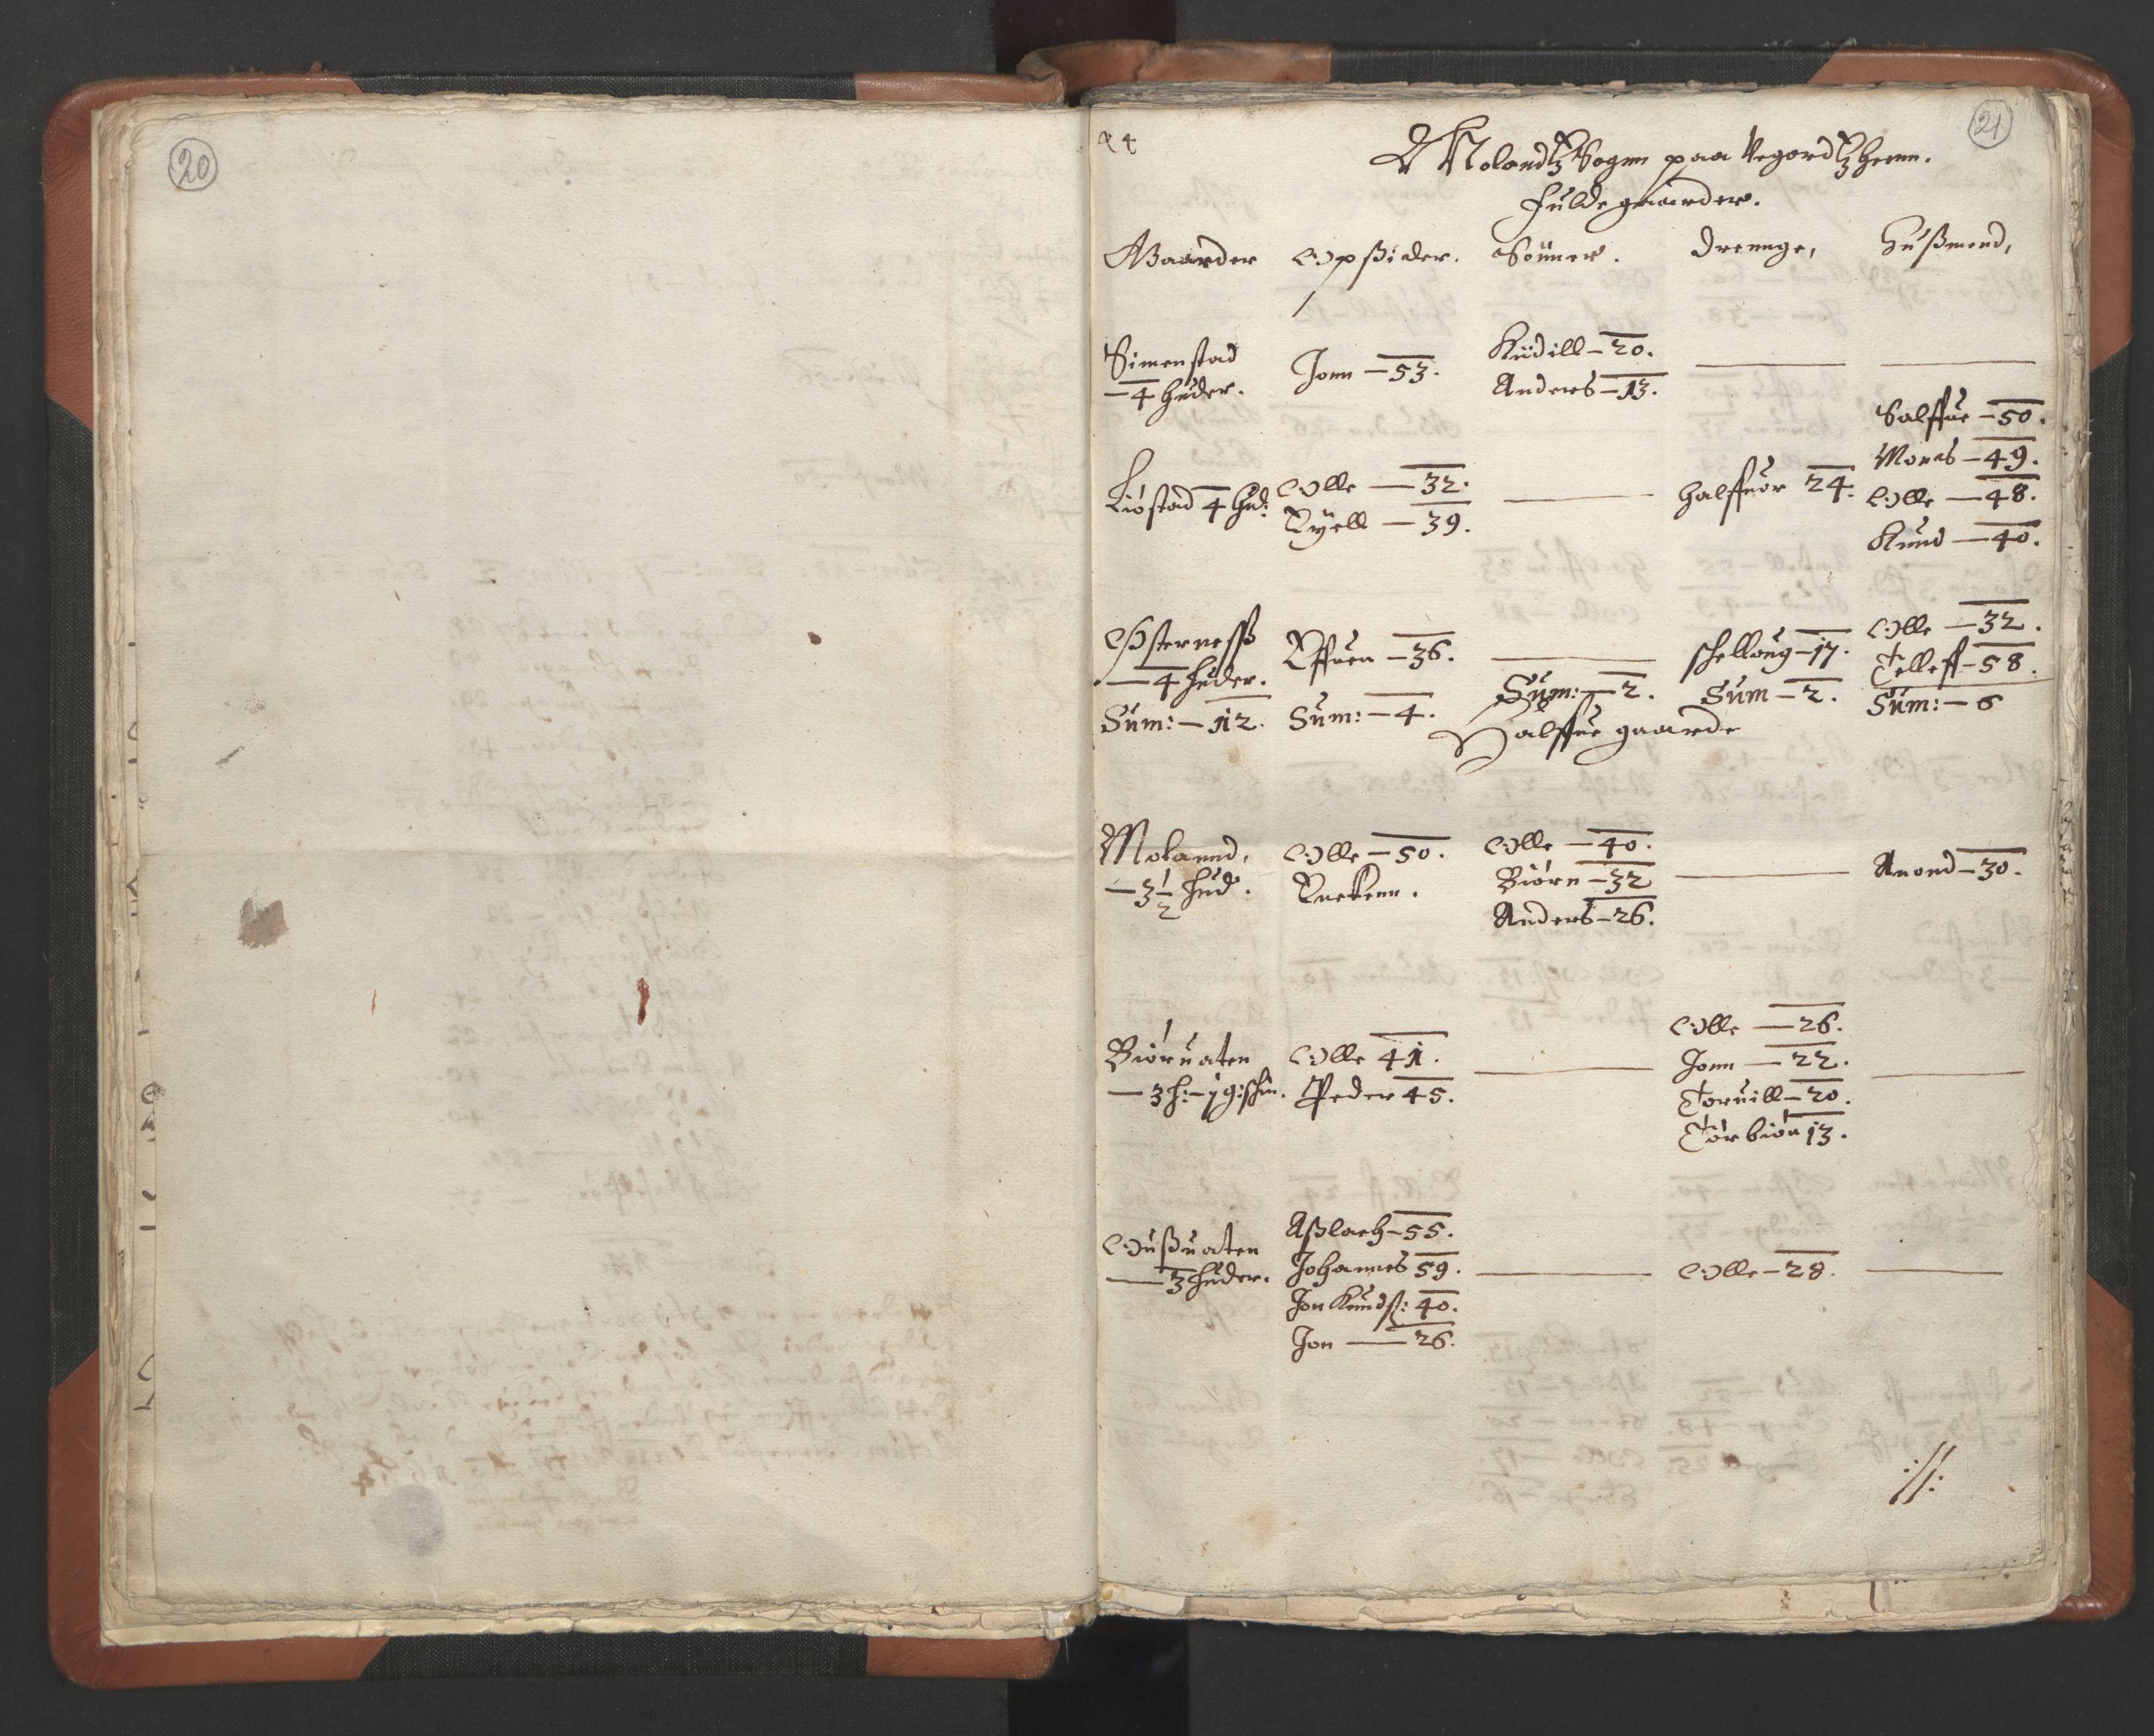 20
21
Molandtz Sogenn paa Vegordtzheenn.
Fulde gaarder.
Gaarder Opsider. Sönner. Drennge, Hußmend,
Simenstad
— 4 huder.
Jonn — 53.
Kiidill — 20.
Anders — 13.
Liöstad 4 hud:
Olle — 32.
Kijell — 39.
halffuor 24.
Salffue — 50.
Mones — 49.
Olle — 48.
Knud — 40.
Østerneß
— 4 huder.
Effuen — 36.
schelloug — 17.
Olle — 32.
Telleff — 58.
Sum: — 12. Sum: — 4. Sum: — 2. Sum — 2. Sum: — 6
Halffue gaarde
Molannd,
— 3 1/2 hud.
Olle — 50.
Olle — 40.
Biörn — 32
Anders — 26.
Anond — 30.
Biöruaten
— 3 h: —
Olle 41.
Peder 45.
Olle — 26.
Jonn — 22.
Toruill — 20.
Törbiön 13.
Oußuaten
— 3 huder.
Aßlach — 55.
Johannes 59.
Jon Knuds: 40.
Jon — 26.
Olle — 28.
://: